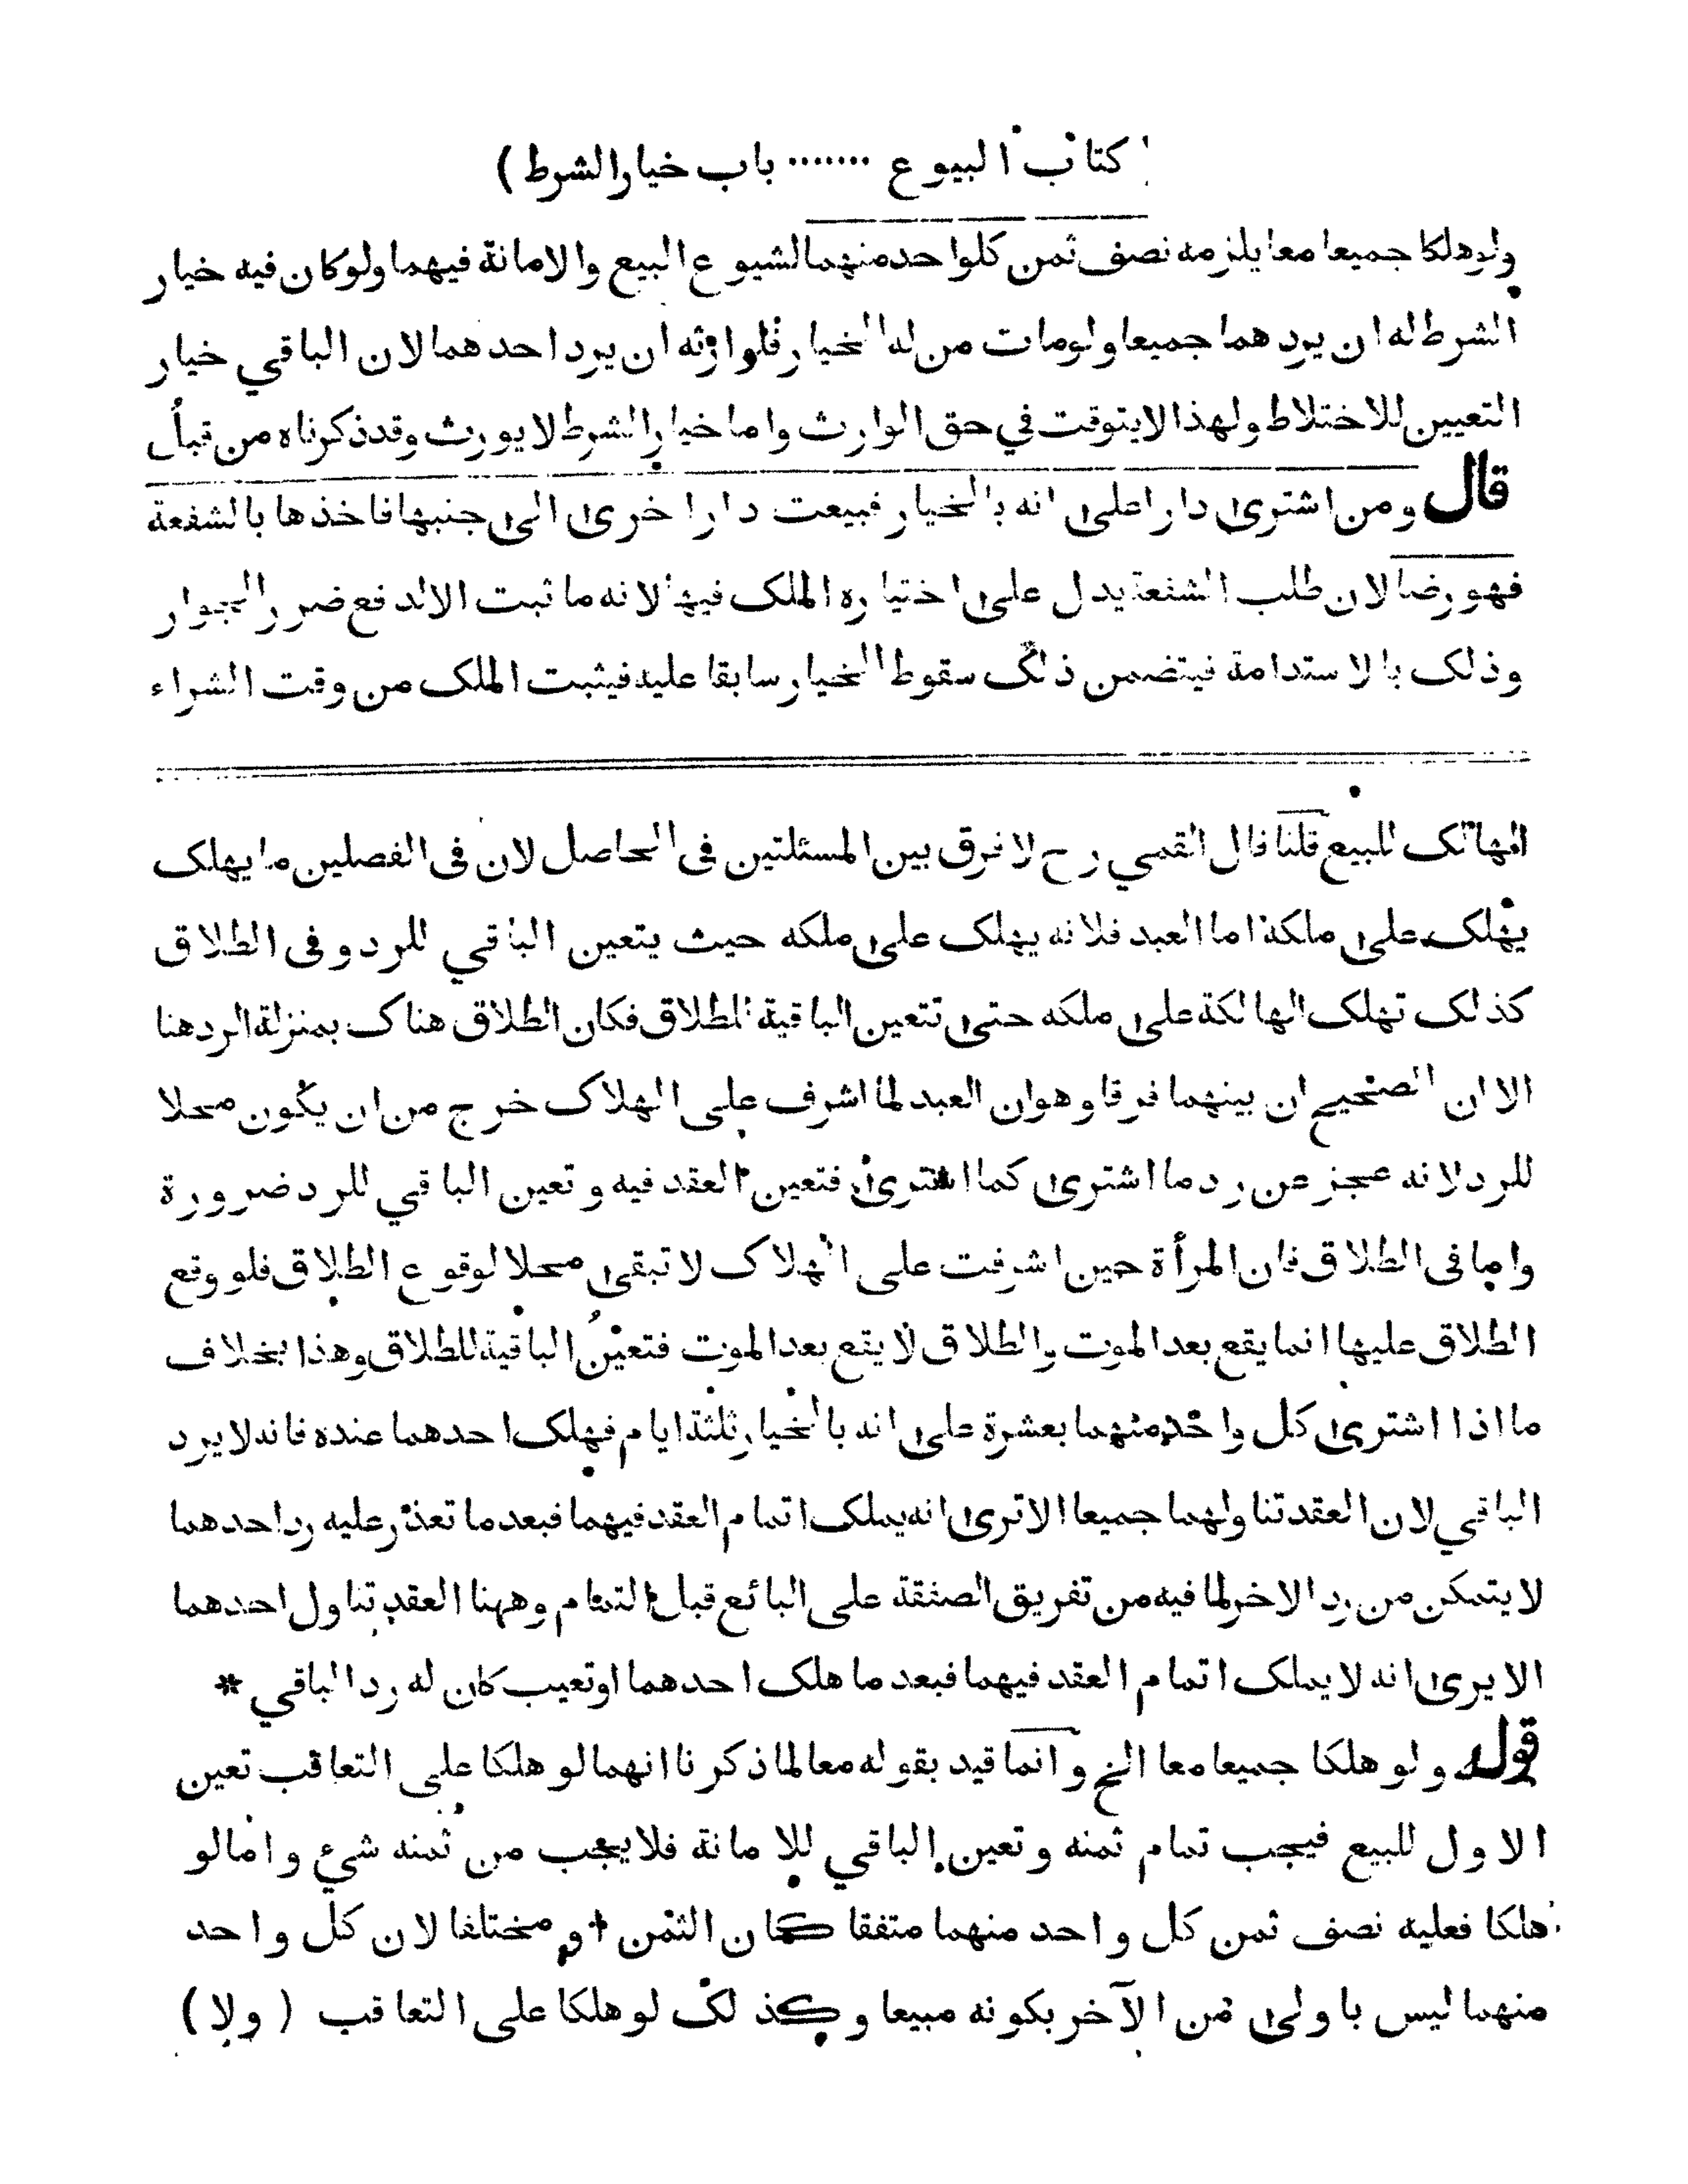 ( كتاب البيوع ....... باب خيار الشرط )
ولو هلكا جميعا معا يلزمه نصف ثمن كل واحد منهما لشيوع البيع والامانة فيهما ولو كان فيه خيار
الشرط له ان يردهما جميعا ولو مات من له الخيار فلوارثه ان يرد احدهما لان الباقي خيار
التعيين للاختلاط ولهذا لا يتوقت في حق الوارث واما خيار الشرط لا يورث وقد ذكرناه من قبل
قال ومن اشترى دارا على انه بالخيار فبيعت دار اخرى الى جنبها فاخذها بالشفعة
فهو رضا لان طلب الشفعة يدل على اختياره الملك فيها لانه ما ثبت الا لدفع ضرر الجوار
وذلك بالاستدامة فيتضمن ذلك سقوط الخيار سابقا عليه فيثبت الملك من وقت الشراء
الهالك للبيع قلنا قال القمي رح لا فرق بين المسئلتين فى الحاصل لان فى الفصلين ما يهلك
يهلك على ملكه اما العبد فلانه يهلك على ملكه حيث يتعين الباقي للرد وفى الطلاق
كذلك تهلك الهالكة على ملكه حتى تتعين الباقية للطلاق فكان الطلاق هناك بمنزلة الرد هنا
الا ان الصحيح ان بينهما فرقا وهو ان العبد لما اشرف على الهلاك خرج من ان يكون محلا
للرد لانه عجز عن رد ما اشترى كما اشترى فتعين العقد فيه وتعين الباقي للرد ضرورة
واما فى الطلاق فان المرأة حين اشرفت على الهلاك لا تبقى محلا لوقوع الطلاق فلو وقع
الطلاق عليها انما يقع بعد الموت والطلاق لا يقع بعد الموت فتعين الباقية للطلاق وهذا بخلاف
ما اذا اشترى كل واحد منهما بعشرة على انه بالخيار ثلثة ايام فهلك احدهما عنده فانه لا يرد
الباقي لان العقد تناولهما جميعا الا ترى انه يملك اتمام العقد فيهما فبعد ما تعذر عليه رد احدهما
لا يتمكن من رد الاخر لما فيه من تفريق الصفقة على البائع قبل التمام وههنا العقد تناول احدهما
الا يرى انه لا يملك اتمام العقد فيهما فبعد ما هلك احدهما او تعيب كان له رد الباقي *
قوله ولو هلكا جميعا معا الخ وانما قيد بقوله معا لما ذكرنا انهما لو هلكا على التعاقب تعين
الاول للبيع فيجب تمام ثمنه وتعين الباقي للامانة فلا يجب من ثمنه شيء واما لو
هلكا فعليه نصف ثمن كل واحد منهما متفقا كان الثمن او مختلفا لان كل واحد
منهما ليس باولى من الآخر بكونه مبيعا وكذلك لو هلكا على التعاقب ( ولا )